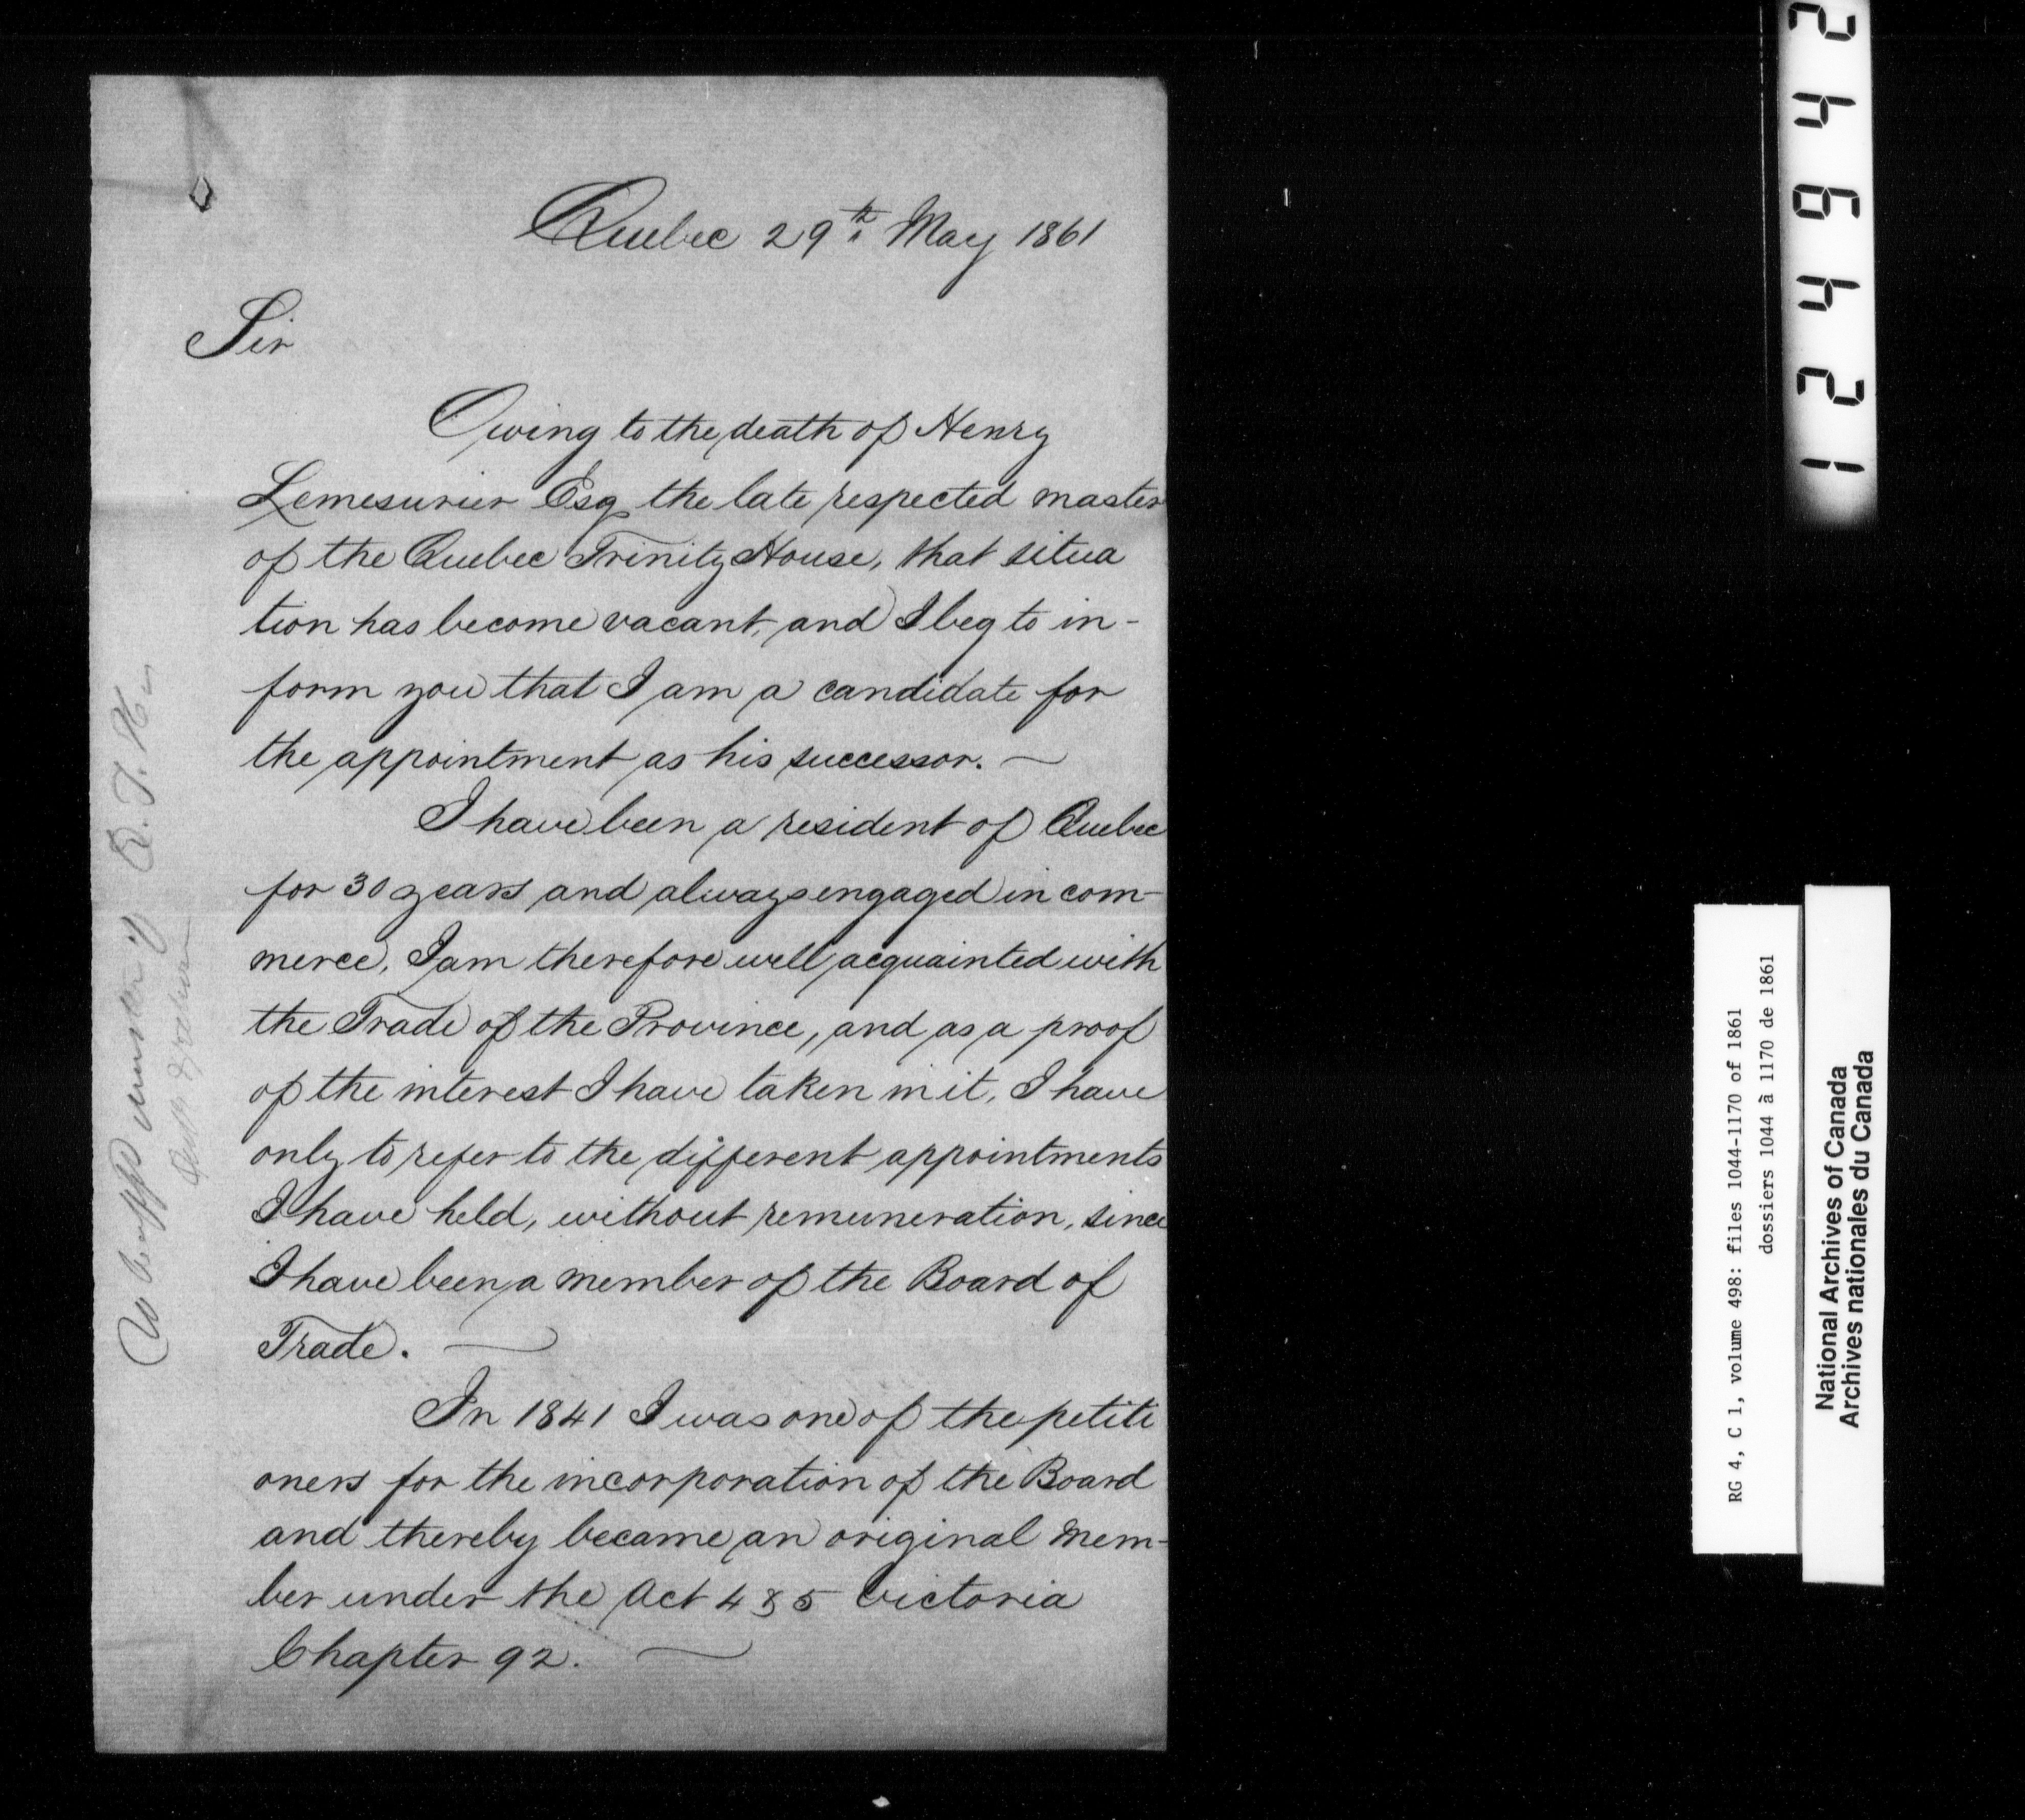 Quebec 29th May 1861
Sir
Owing to the death of Henry
Lemesurier Esq the late respected master
of the Quebec Trinity House, that situa
tion has become vacant, and I beg to in-
form you that I am a candidate for
the appointment as his successor. —
I have been a resident of Quebec
for 30 years and always engaged in com-
merce, I am therefore well acquainted with
the Trade of the Province, and as a proof
of the interest I have taken in it, I have
only to refer to the different appointments
I have held, without remuneration, since
I have been a member of the Board of
Trade. —
In 1841 I was one of the petiti
oners for the incorporation of the Board
and thereby became an original Mem-
ber under the Act 4 & 5 Victoria
Chapter 92. —
master of Q. T. H.
124942
RG 4, C 1, volume 498: files 1044-1170 of 1861
dossiers 1044 à 1170 de 1861
National Archives of Canada
Archives nationales du Canada